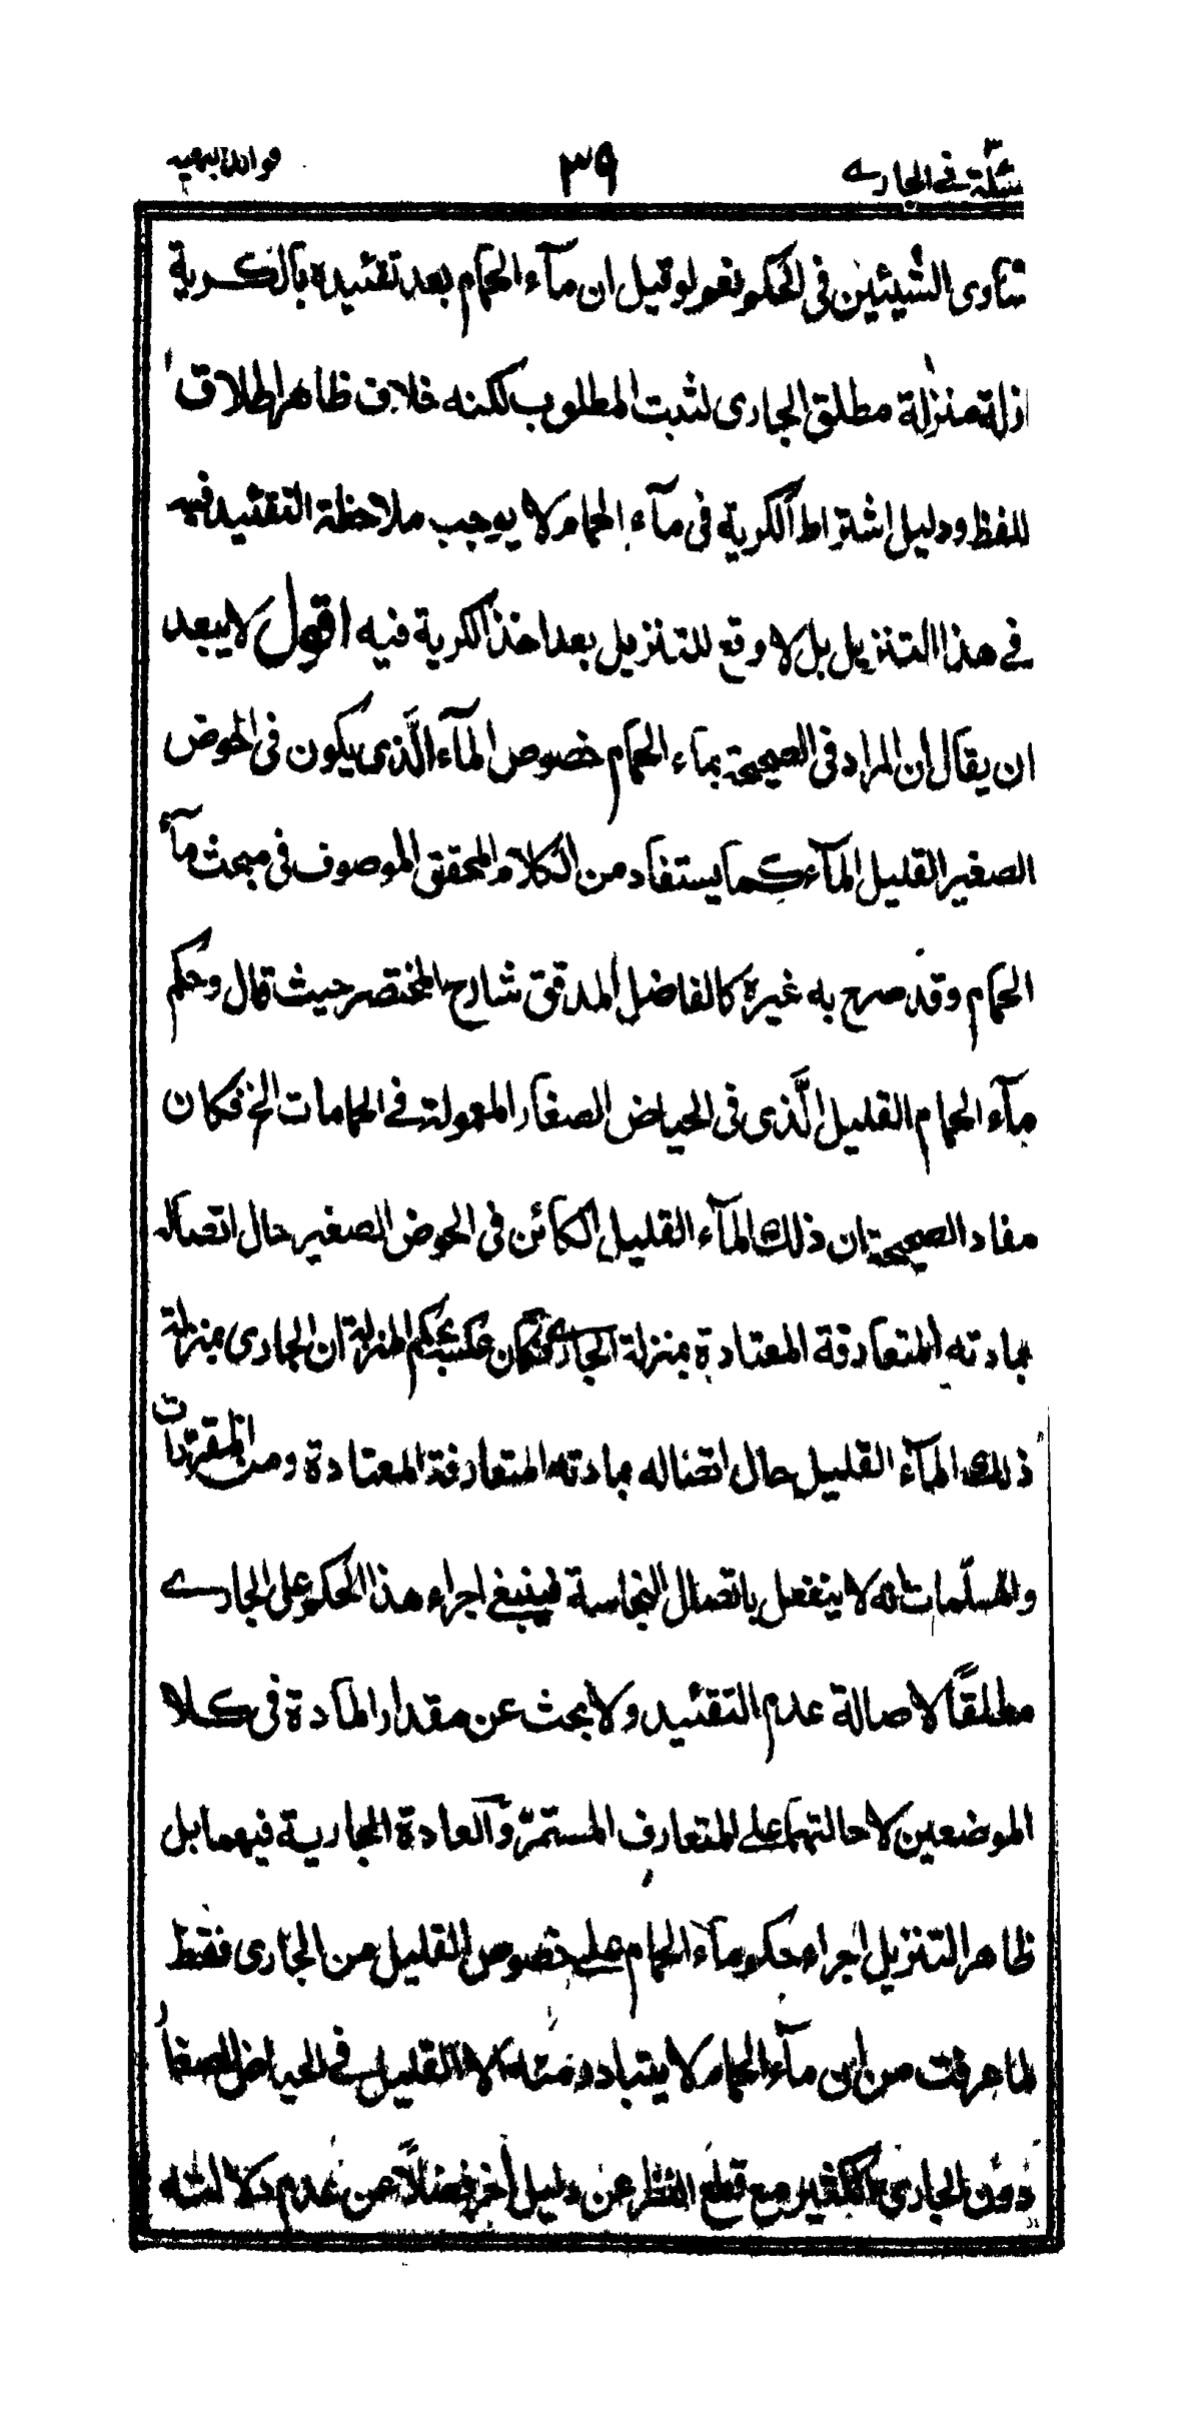 مسئلة في الجاري ٣٩ فوائد بهية
تساوى الشيئين فى الحكم نعم لو قيل ان مآء الحمام بعد تقئيده بالكرية
نازلة منزلة مطلق الجارى لثبت المطلوب لكنه خلاف ظاهر اطلاق
اللفظ ودليل اشتراط الكرية فى مآء الحمام لا يوجب ملاحظة التقئيد فيه
في هذا التنزيل بل لا وقع للتنزيل بعد اخذ الكرية فيه اقول لا يبعد
ان يقال ان المراد فى الصحيحة بماء الحمام خصوص المآء الّذى يكون فى الحوض
الصغير القليل المآء كما يستفاد من الكلام المحقق الموصوف فى مبحث مآء
الحمام وقد صرح به غيره كالفاضل المدقق شارح المختصر حيث قال وحكم
مآء الحمام القليل الّذى فى الحياض الصغار المعمولة في الحمامات الخ فكان
مفاد الصحيحة ان ذلك المآء القليل الكائن فى الحوض الصغير حال اتصاله
بمادته المتعارفة المعتادة بمنزلة الجارى فكان عكسه بحكم المنزلة ان الجارى بمنزلة
ذلك المآء القليل حال اتصاله بمادته المتعارفة المعتادة ومن المقررات
والمسلّمات انه لا ينفعل باتصال النجاسة فينبغي اجراء هذا الحكم على الجاري
مطلقًا لاصالة عدم التقئيد ولا بحث عن مقدار المادة فى كلا
الموضعين لاحالتهما على المتعارف المستمرّ والعادة الجارية فيهما بل
ظاهر التنزيل اجراء حكم مآء الحمام على خصوص القليل من الجارى فقط
لما عرفت من ان مآء الحمام لا يتبادر منه الا القليل في الحياض الصغار
دون الجارى الكثير مع قطع النظر عن دليل اخر فضلاً عن عدم دلالته